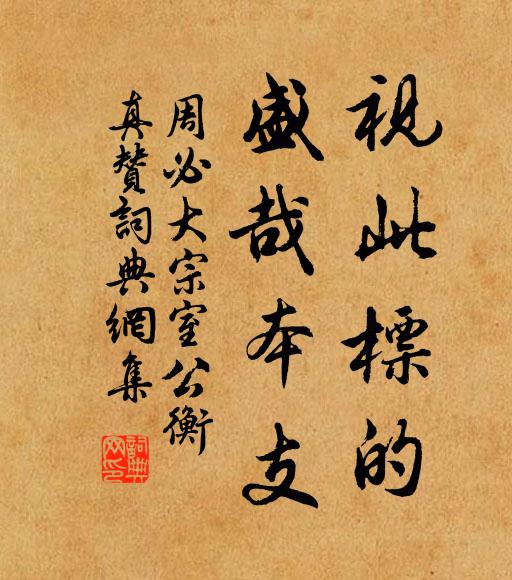 視此標的
盛哉本支
周必大宗室公衡
真贊詞典網集
詞典网印